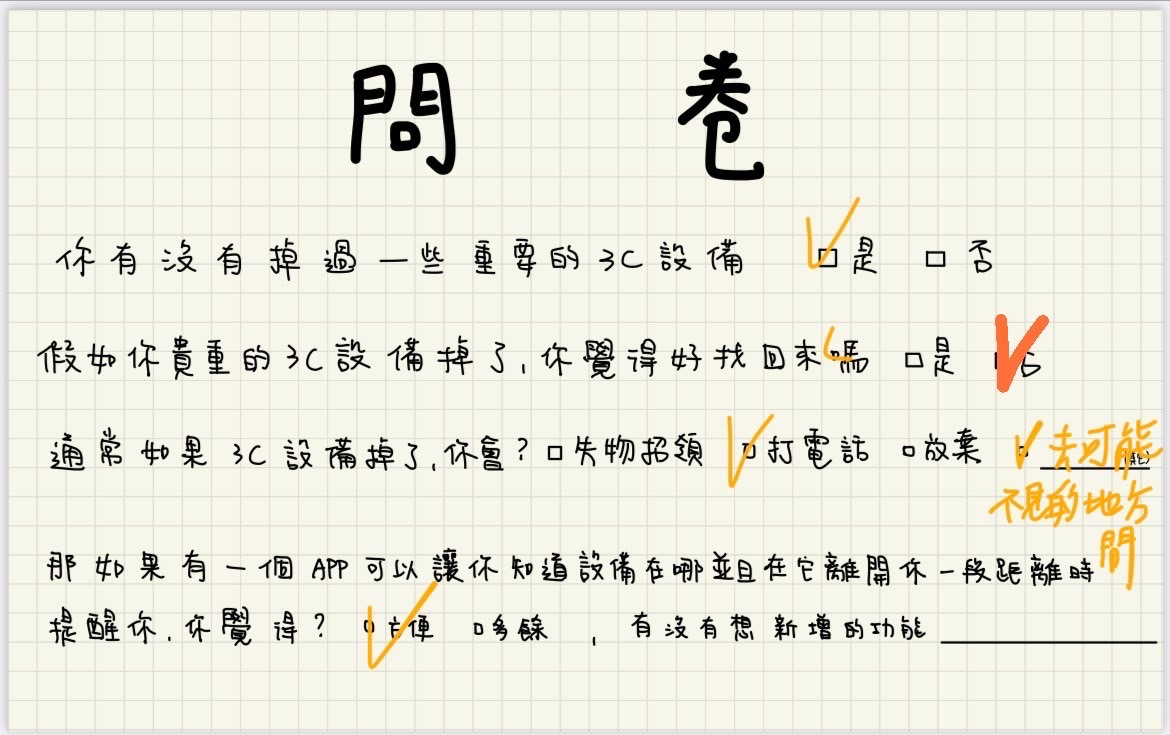 問 卷
你有沒有掉過一些重要的3C設備 □是 □否
假如你貴重的3C設備掉了,你覺得好找回來嗎 □是 □否
通常如果3C設備掉了,你會?□失物招領 □打電話 □放棄 □去可能
(其它)
不見的地方
問
那如果有一個APP可以讓你知道設備在哪並且在它離開你一段距離時
提醒你,你覺得?□方便 □多餘 ,有沒有想新增的功能